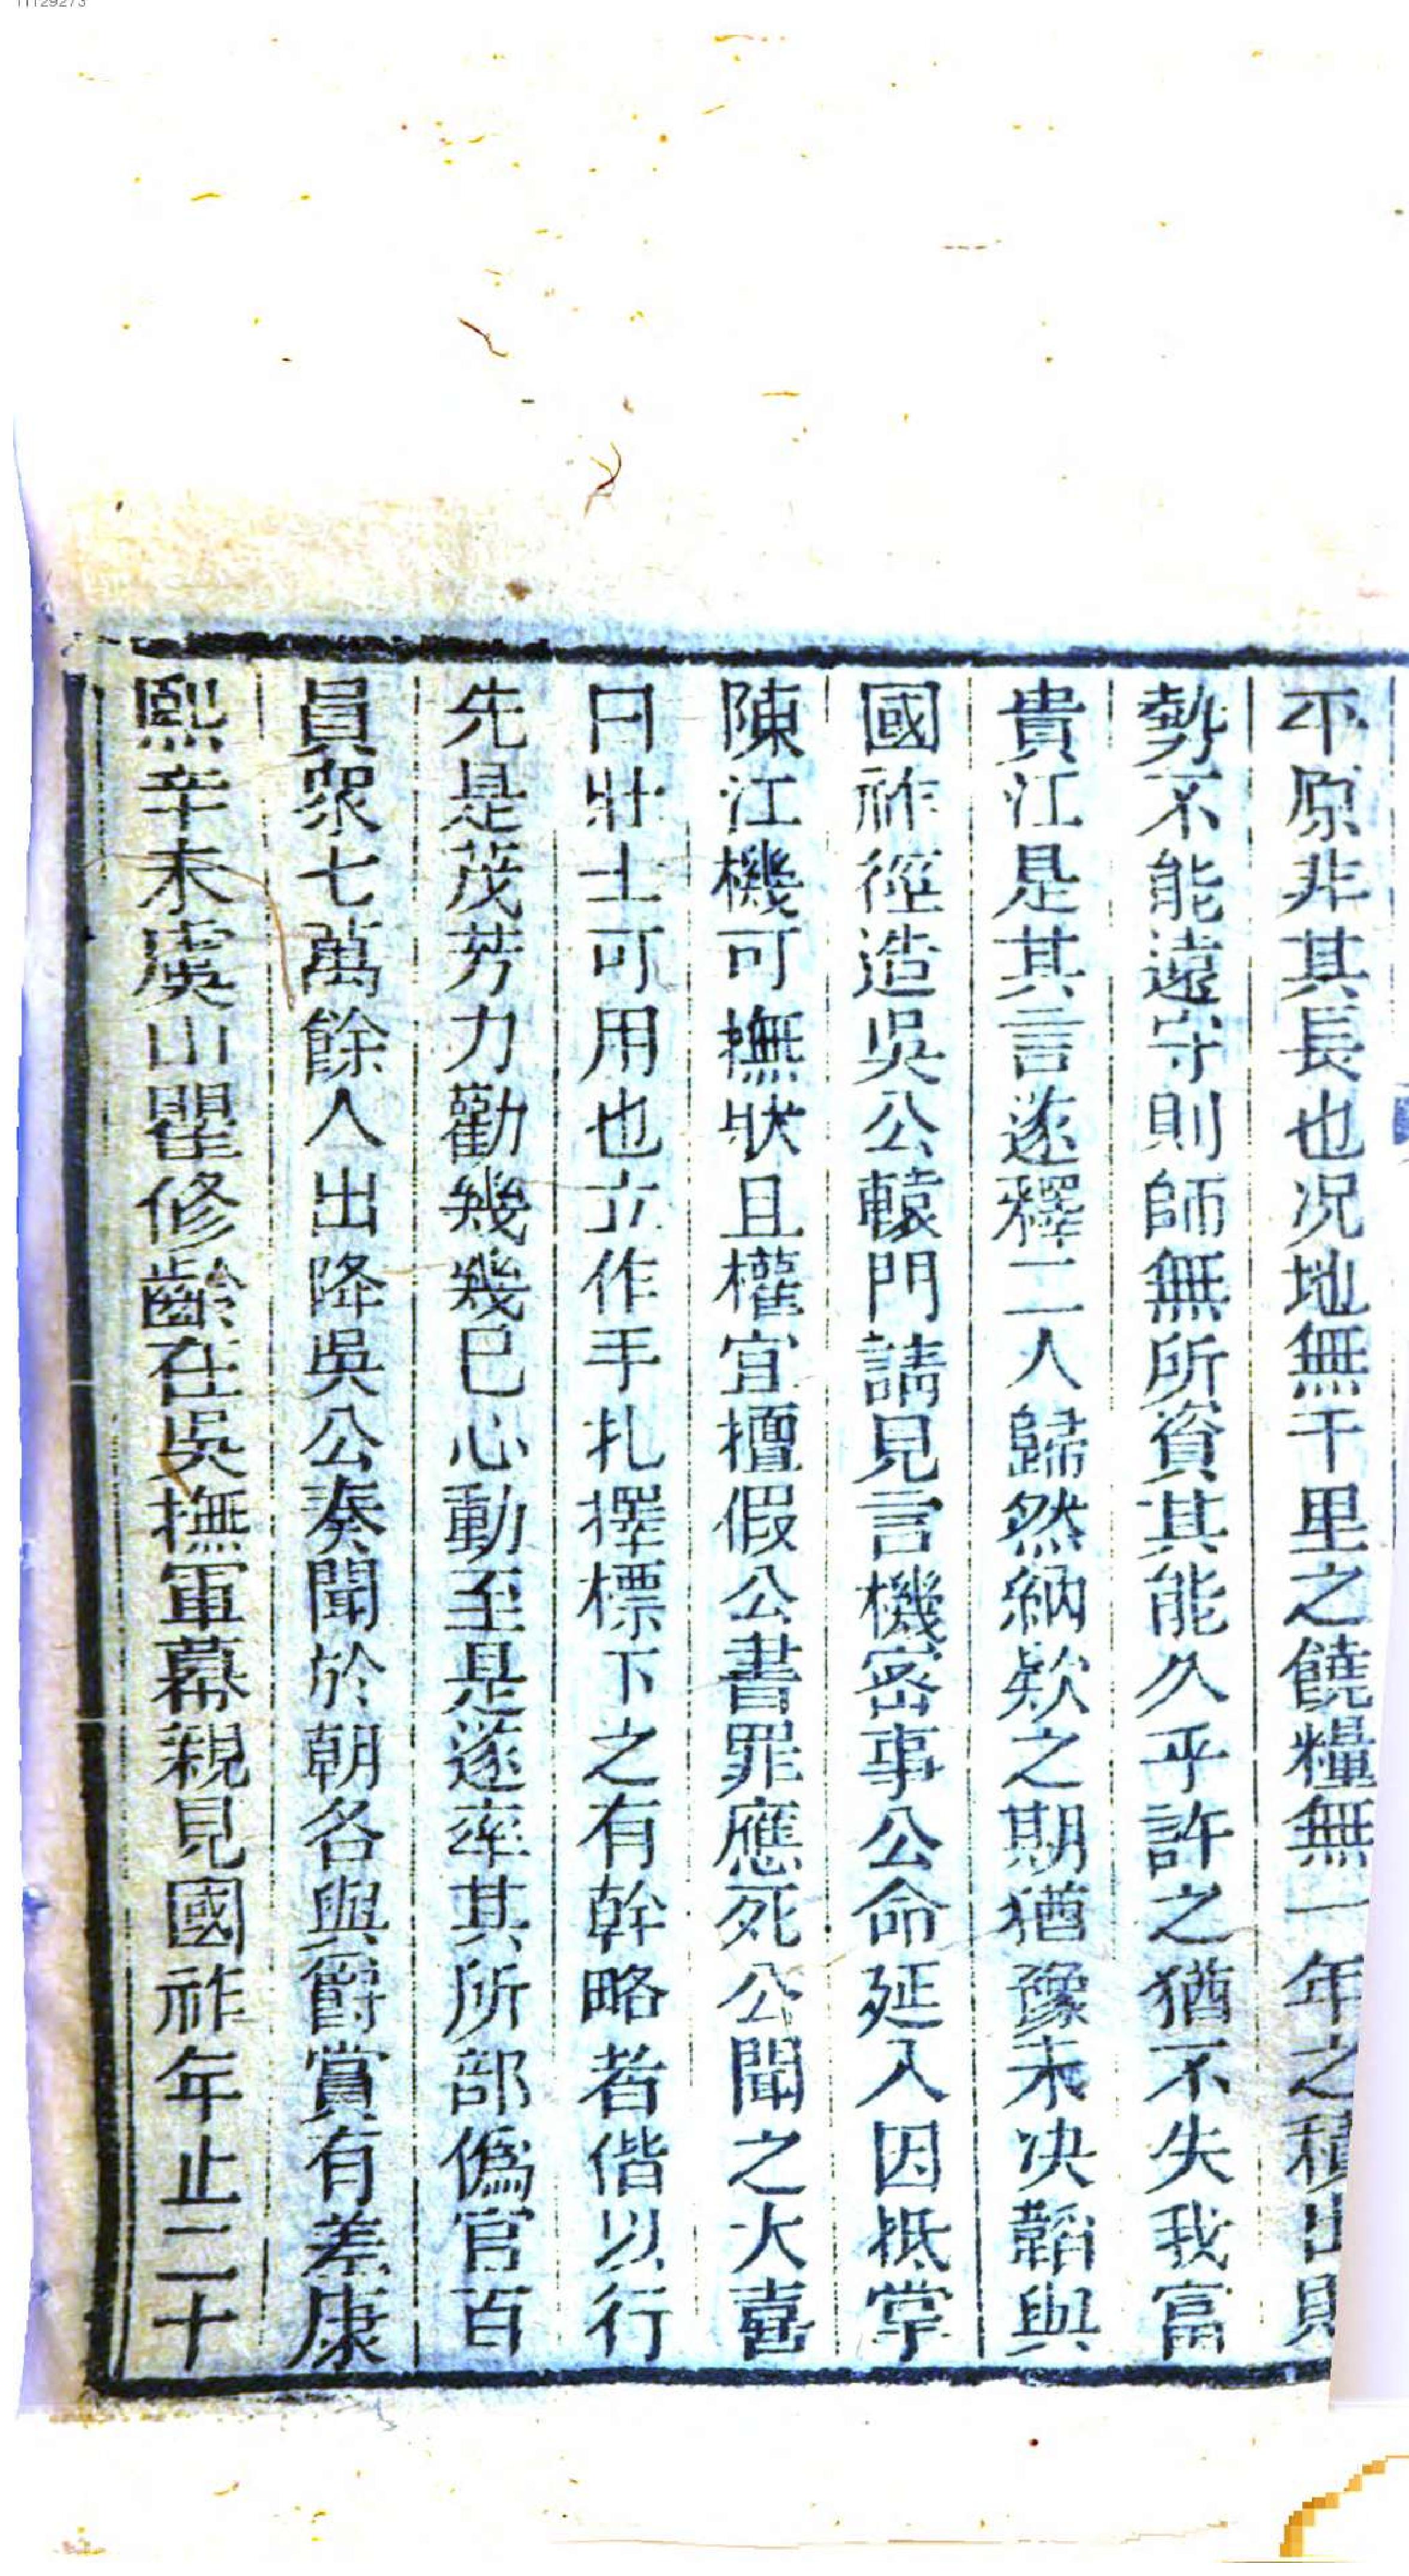 平原非其長也況地無千里之饒糧無一年之積出則
勢不能遠守則師無所資其能久乎許之猶不失我富
貴江是其言遂釋二人歸然納欵之期猶豫未決韜與
國祚徑造吳公轅門請見言機密事公命延入因抵掌
陳江機可撫狀且權宜擅假公書罪應死公聞之大喜
曰壯士可用也立作手札擇標下之有幹略者偕以行
先是茂芳力勸幾幾已心動至是遂率其所部僞官百
員衆七萬餘人出降吳公奏聞於朝各與爵賞有差康
熙辛未虞山瞿修齡在吳撫軍幕親見國祚年止二十